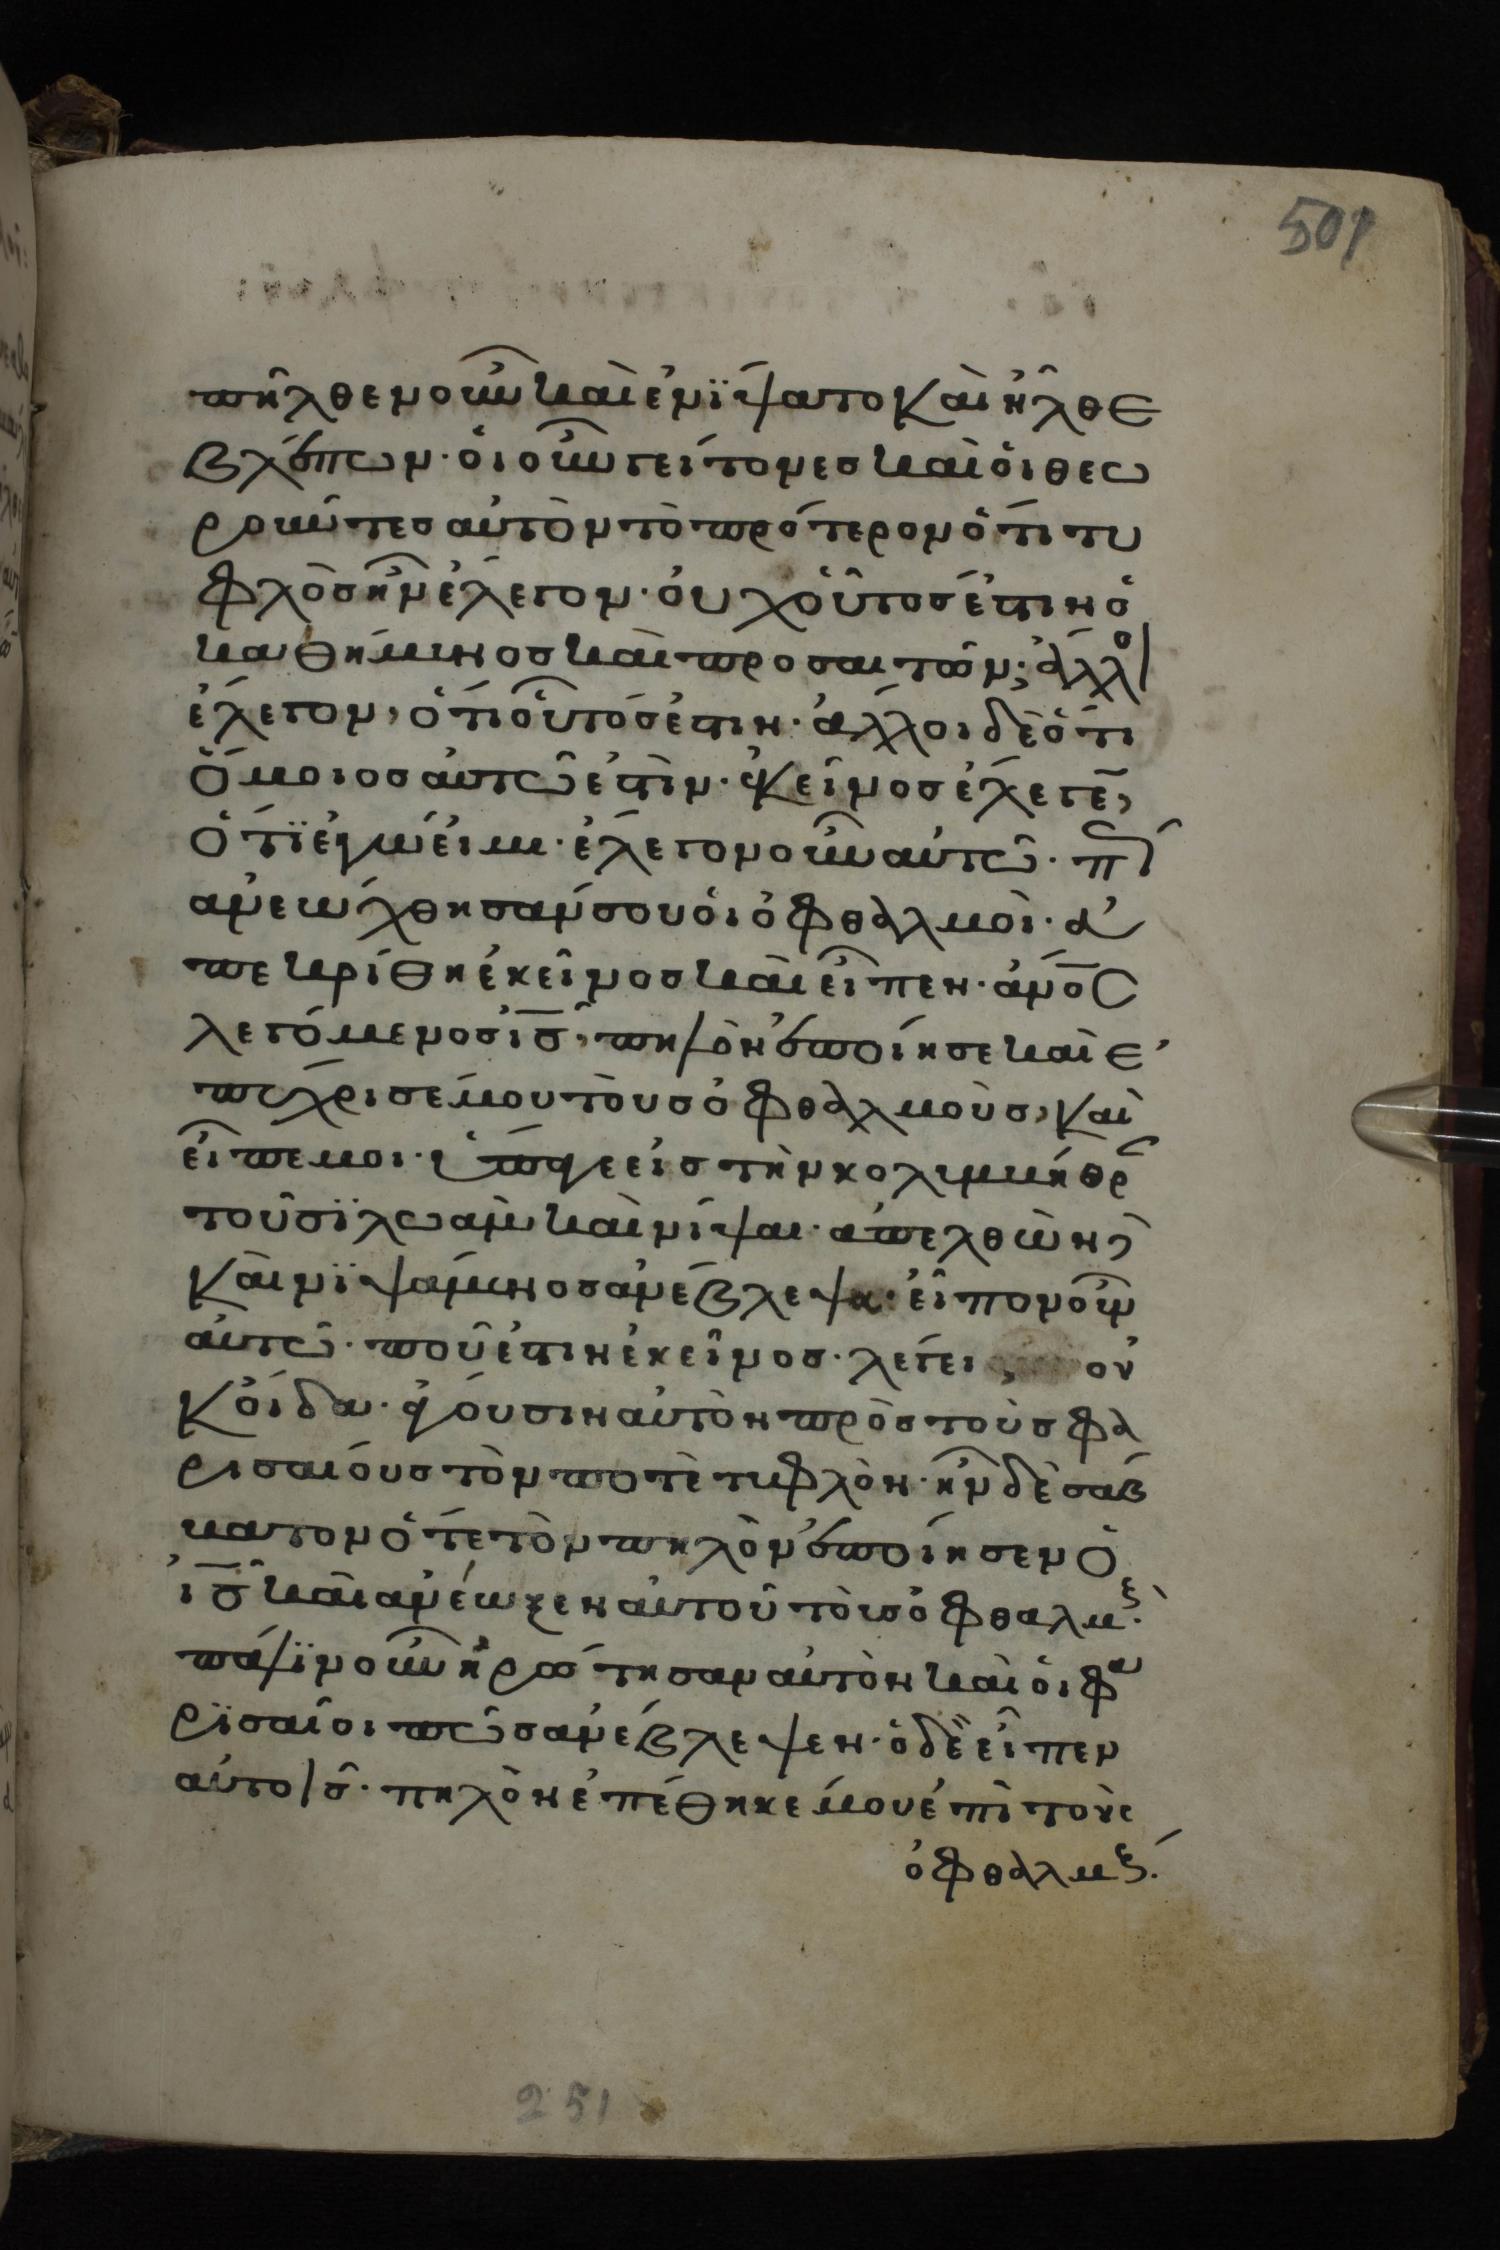 501
πῆλθεν οὖν καὶ ἐνίψατο καὶ ἦλθε
βλέπων· οἱ οὖν γείτονες καὶ οἱ θεω
ροῦντες αὐτὸν τὸ πρότερον ὅτι τυ
φλὸς ἦν ἔλεγον· οὐχ οὗτός ἐστιν ὁ
καθήμενος καὶ προσαιτῶν; ἄλλοι
ἔλεγον, ὅτι οὗτός ἐστιν· ἄλλοι δὲ ὅτι
ὅμοιος αὐτῶ ἐστὶν· ἐκεῖνος ἔλεγεν,
ὅτι ἐγώ εἰμι· ἔλεγον οὖν αὐτῶ· πῶς
ἀνεώχθησάν σου οἱ ὀφθαλμοὶ· ἀ
πεκρίθη ἐκεῖνος καὶ εἶπεν· ἀν̅ο̅ς
λεγόμενος ι̅ς̅, πηλὸν ἐποίησε καὶ ἐ
πέχρισέ μου τοὺς ὀφθαλμοὺς, καὶ
εἶπέ μοι· ὕπαγε εἰς τὴν κολυμβήθρ
τοῦ σϊλωὰμ καὶ νίψαι· ἀπελθὼν,
καὶ νϊψάμενος ἀνέβλεψα· εἶπον οὖν
αὐτῶ· ποῦ ἐστιν ἐκεῖνος· λέγει, οὐ
κ οἶδα· ἄγουσιν αὐτὸν πρὸς τοὺς φα
ρισαίους τὸν ποτὲ τυφλὸν· ἦν δὲ σάβ
βατον ὅτε τὸν πηλὸν ἐποίησεν ὁ
ι̅ς̅ καὶ ἀνέωξεν αὐτοῦ τοὺς ὀφθαλμοὺς·
πάλϊν οὖν ἠρώτησαν αὐτὸν καὶ οἱ φα
ρϊσαῖοι πῶς ἀνέβλεψεν· ὁ δὲ εἶπεν
αὐτοῖς· πηλὸν ἐπέθηκέ μου ἐπὶ τοὺς
ὀφθαλμούς·
251